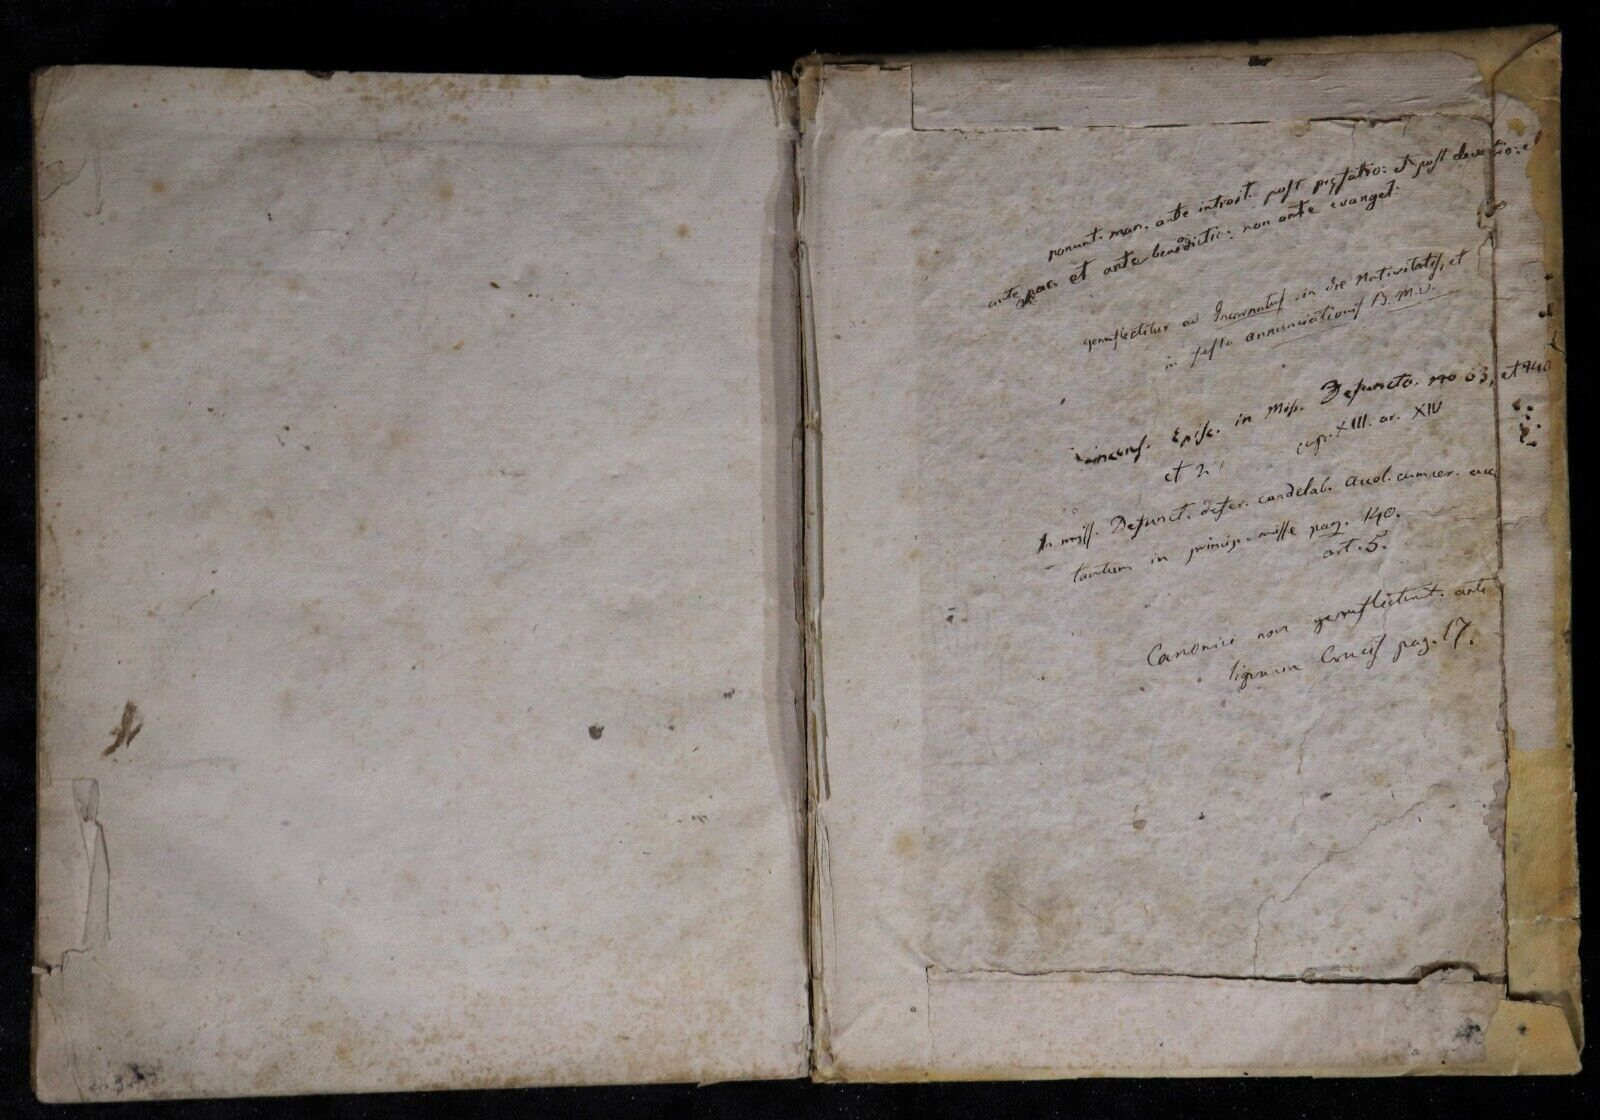 ponunt. man. ante introit. post et post
ante pac. et ante benedictio: non ante evangel:
genuflectitur ad Incarnatus in die Nativitatis, et
in festo annunciationis B. M. V.
incens. Episc. in Miss. Defuncto. no 63, et 140
et 2 cap. XIII. ar. XIV
In miss. Defunct. defer. candelab. Acol. cum cer. acc.
tantum in princip. misse pag. 140.
art. 5.
Canonici non genuflectunt ante
lignum Crucis pag. 17.